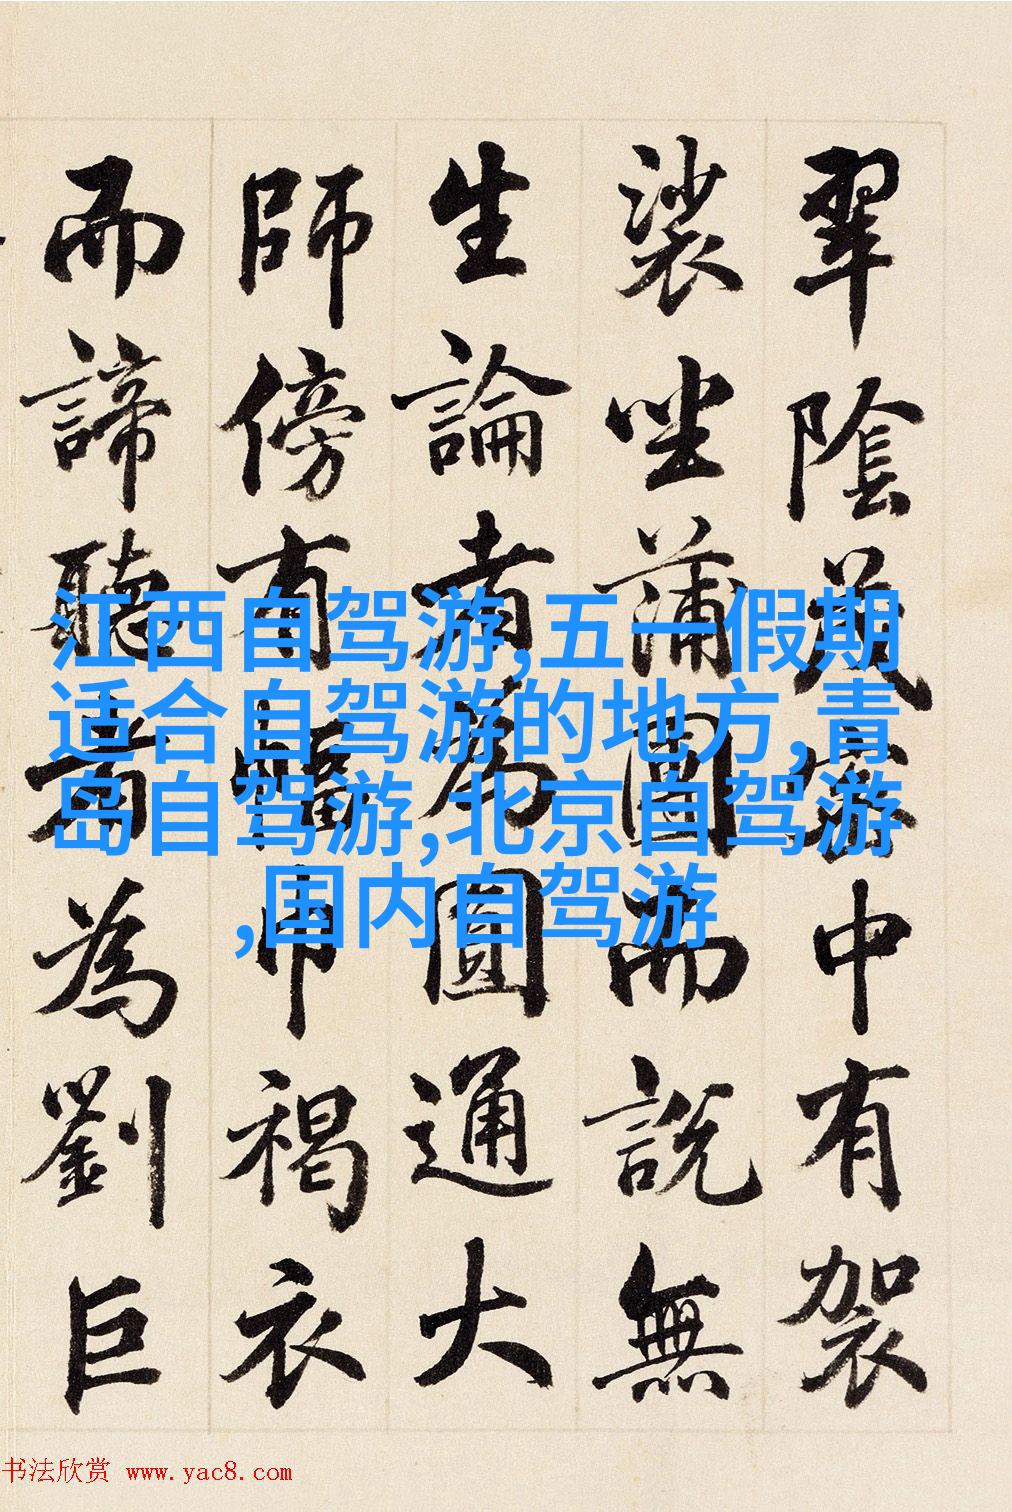 翠陰茂密中有袈
裟坐蒲團而說無
生論者為圓通大
師傍有幅巾褐衣
而諦聽者為劉巨
江西自驾游,五一假期
适合自驾游的地方,青
岛自驾游,北京自驾游
,国内自驾游
书法欣赏 www.yac8.com